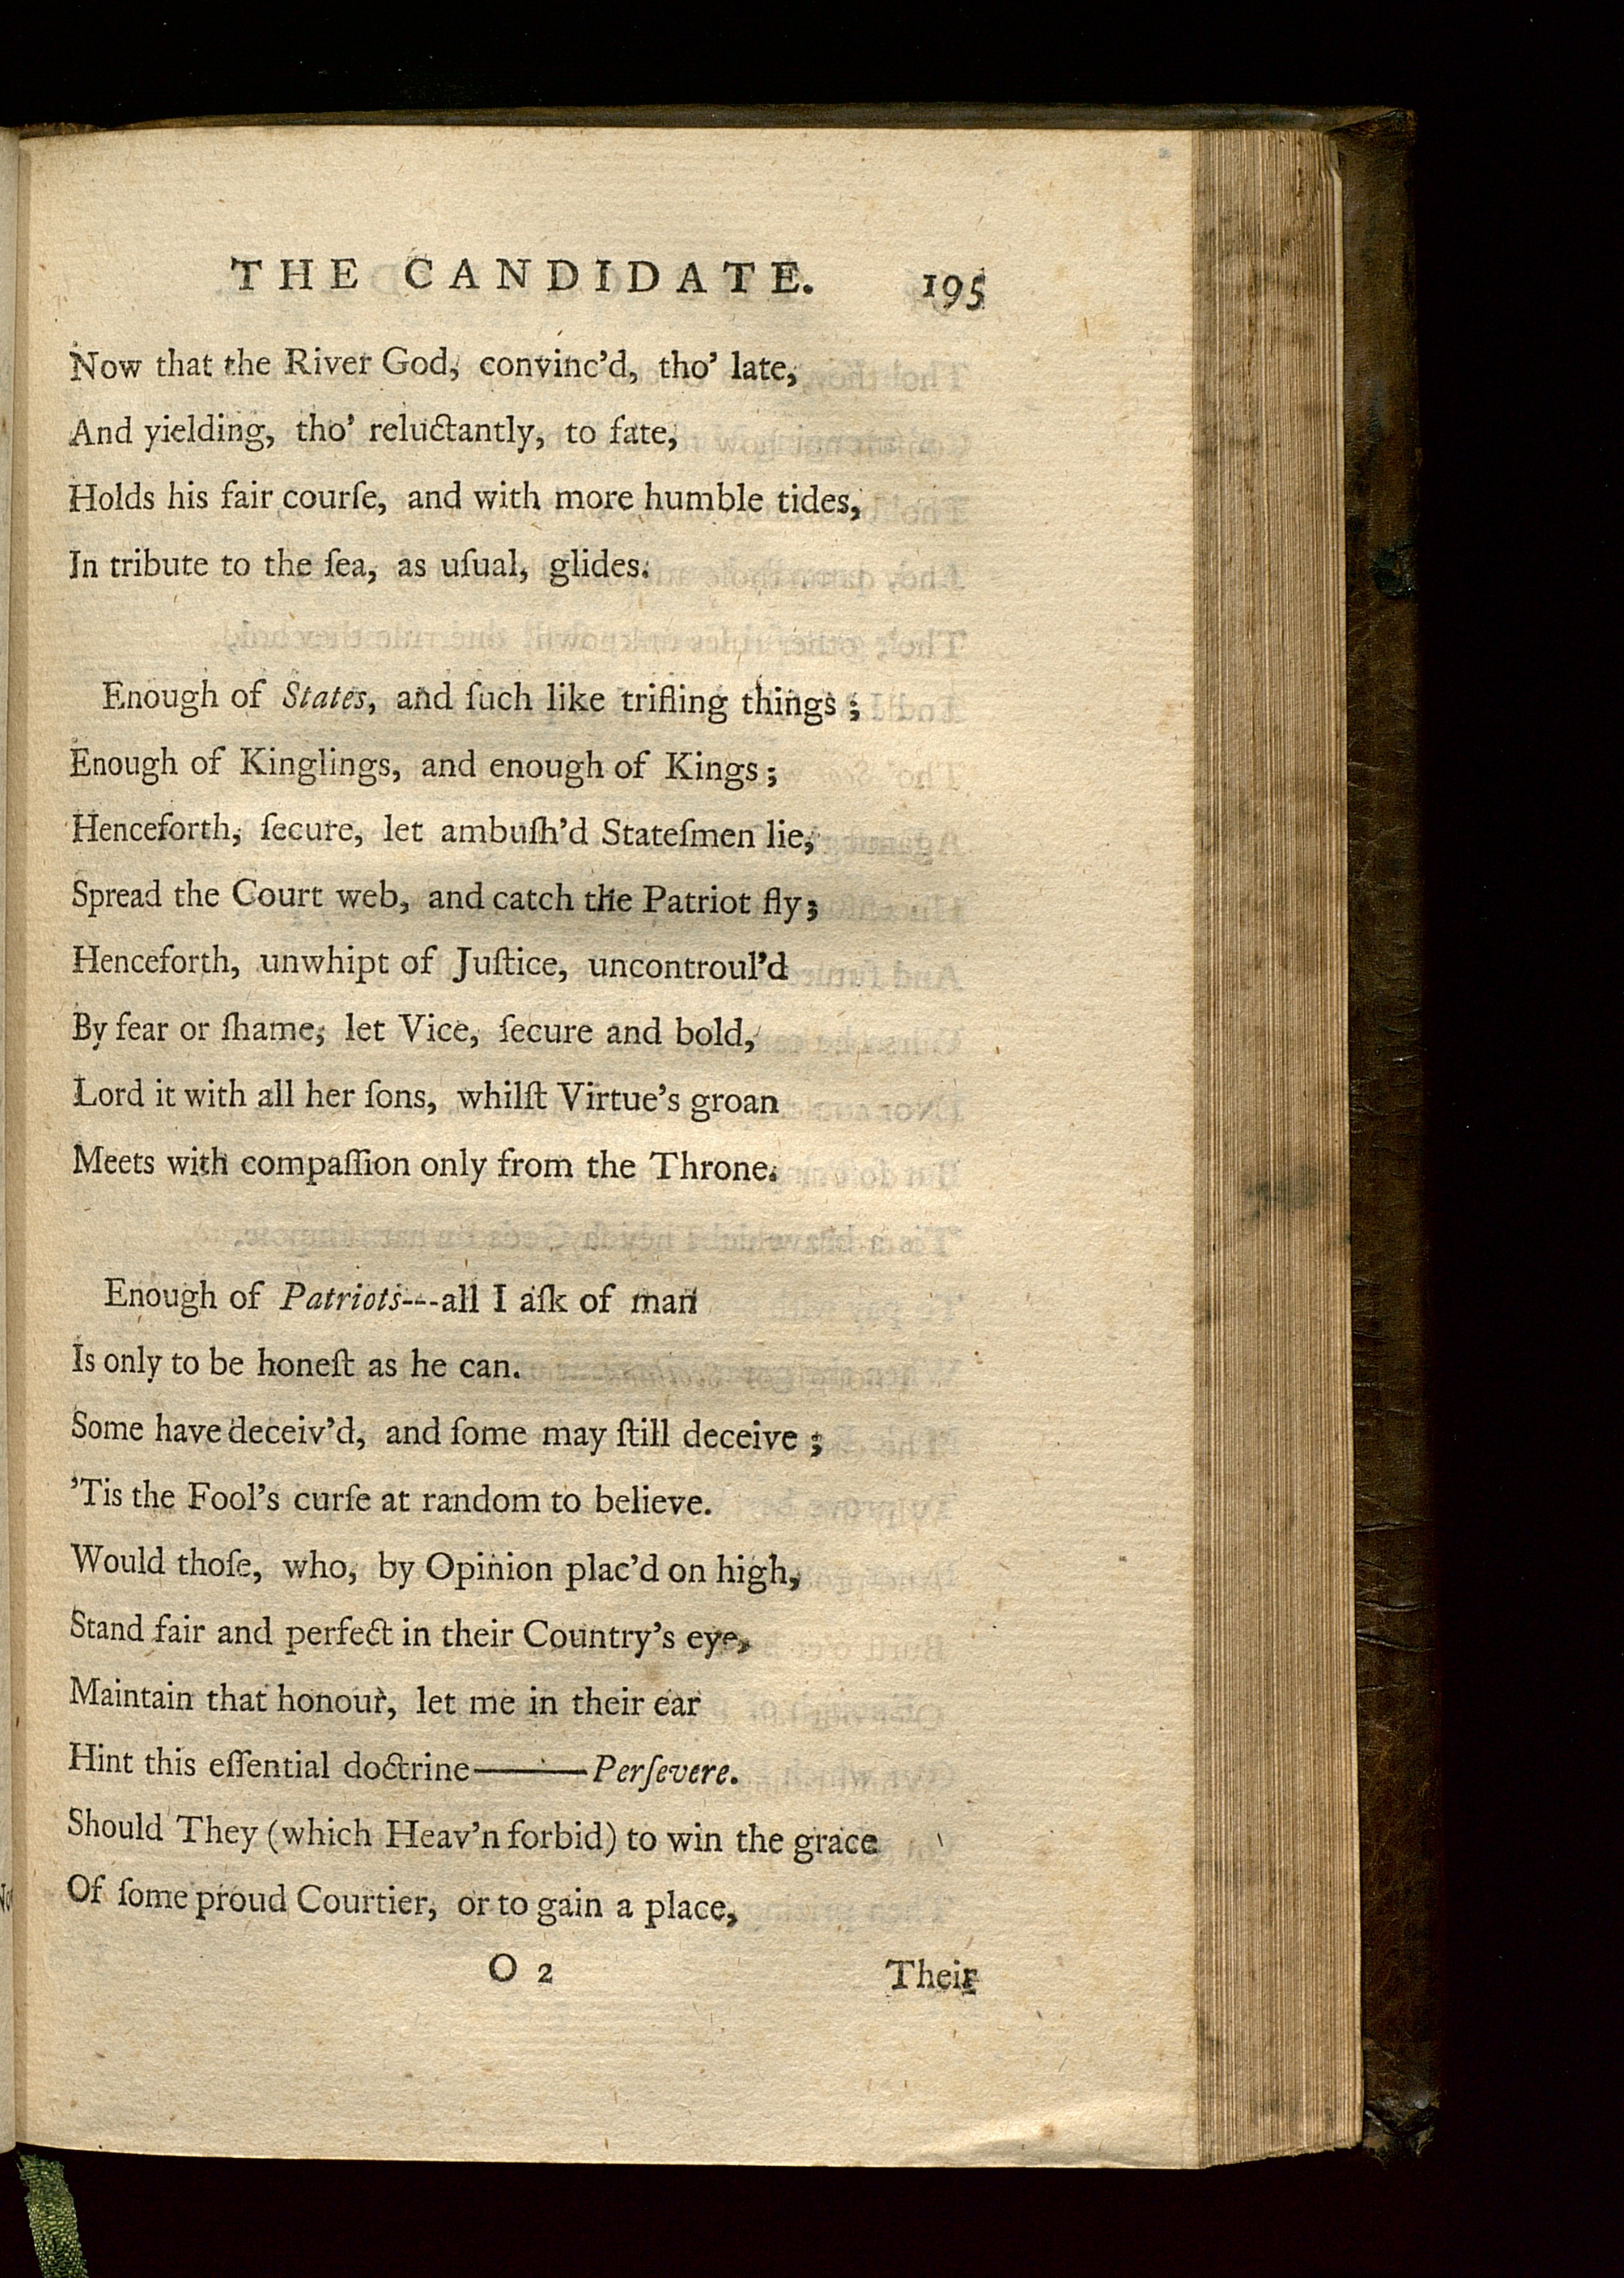 THE CANDIDATE. 195
Now that the River God, convinc'd, tho' late,
And yielding, tho' reluctantly, to fate,
Holds his fair courſe, and with more humble tides,
In tribute to the ſea, as uſual, glides.
Enough of States, and ſuch like trifling things;
Enough of Kinglings, and enough of Kings;
Henceforth, ſecure, let ambuſh'd Stateſmen lie,
Spread the Court web, and catch the Patriot fly;
Henceforth, unwhipt of Juſtice, uncontroul'd
By fear or ſhame, let Vice, ſecure and bold,
Lord it with all her ſons, whilſt Virtue's groan
Meets with compaſſion only from the Throne.
Enough of Patriots---all I aſk of man
Is only to be honeſt as he can.
Some have deceiv'd, and ſome may ſtill deceive;
'Tis the Fool's curſe at random to believe.
Would thoſe, who, by Opinion plac'd on high,
Stand fair and perfect in their Country's eye,
Maintain that honour, let me in their ear
Hint this eſſential doctrine———Perſevere.
Should They (which Heav'n forbid) to win the grace
Of ſome proud Courtier, or to gain a place,
O 2 Their